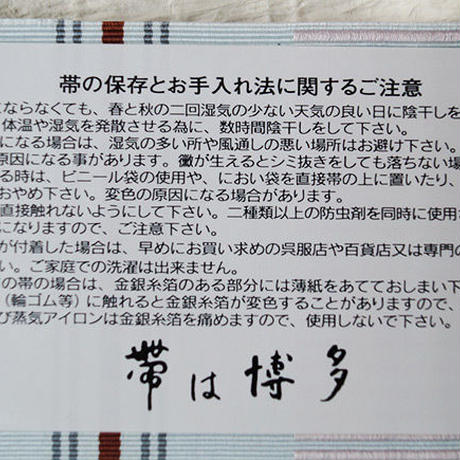 帯の保存とお手入れ法に関するご注意
にならなくても、春と秋の二回湿気の少ない天気の良い日に陰干しを
体温や湿気を発散させる為に、数時間陰干しをして下さい。
になる場合は、湿気の多い所や風通しの悪い場所はお避け下さい。
原因になる事があります。黴が生えるとシミ抜きをしても落ちない場
る時は、ビニール袋の使用や、におい袋を直接帯の上に置いたり、
おやめ下さい。変色の原因になる場合があります。
直接触れないようにして下さい。二種類以上の防虫剤を同時に使用
になりますので、ご注意下さい。
が付着した場合は、早めにお買い求めの呉服店や百貨店又は専門の
い。ご家庭での洗濯は出来ません。
の帯の場合は、金銀糸箔のある部分には薄紙をあてておしまい下
（輪ゴム等）に触れると金銀糸箔が変色することがありますので、
び蒸気アイロンは金銀糸箔を痛めますので、使用しないで下さい。
帯は博多